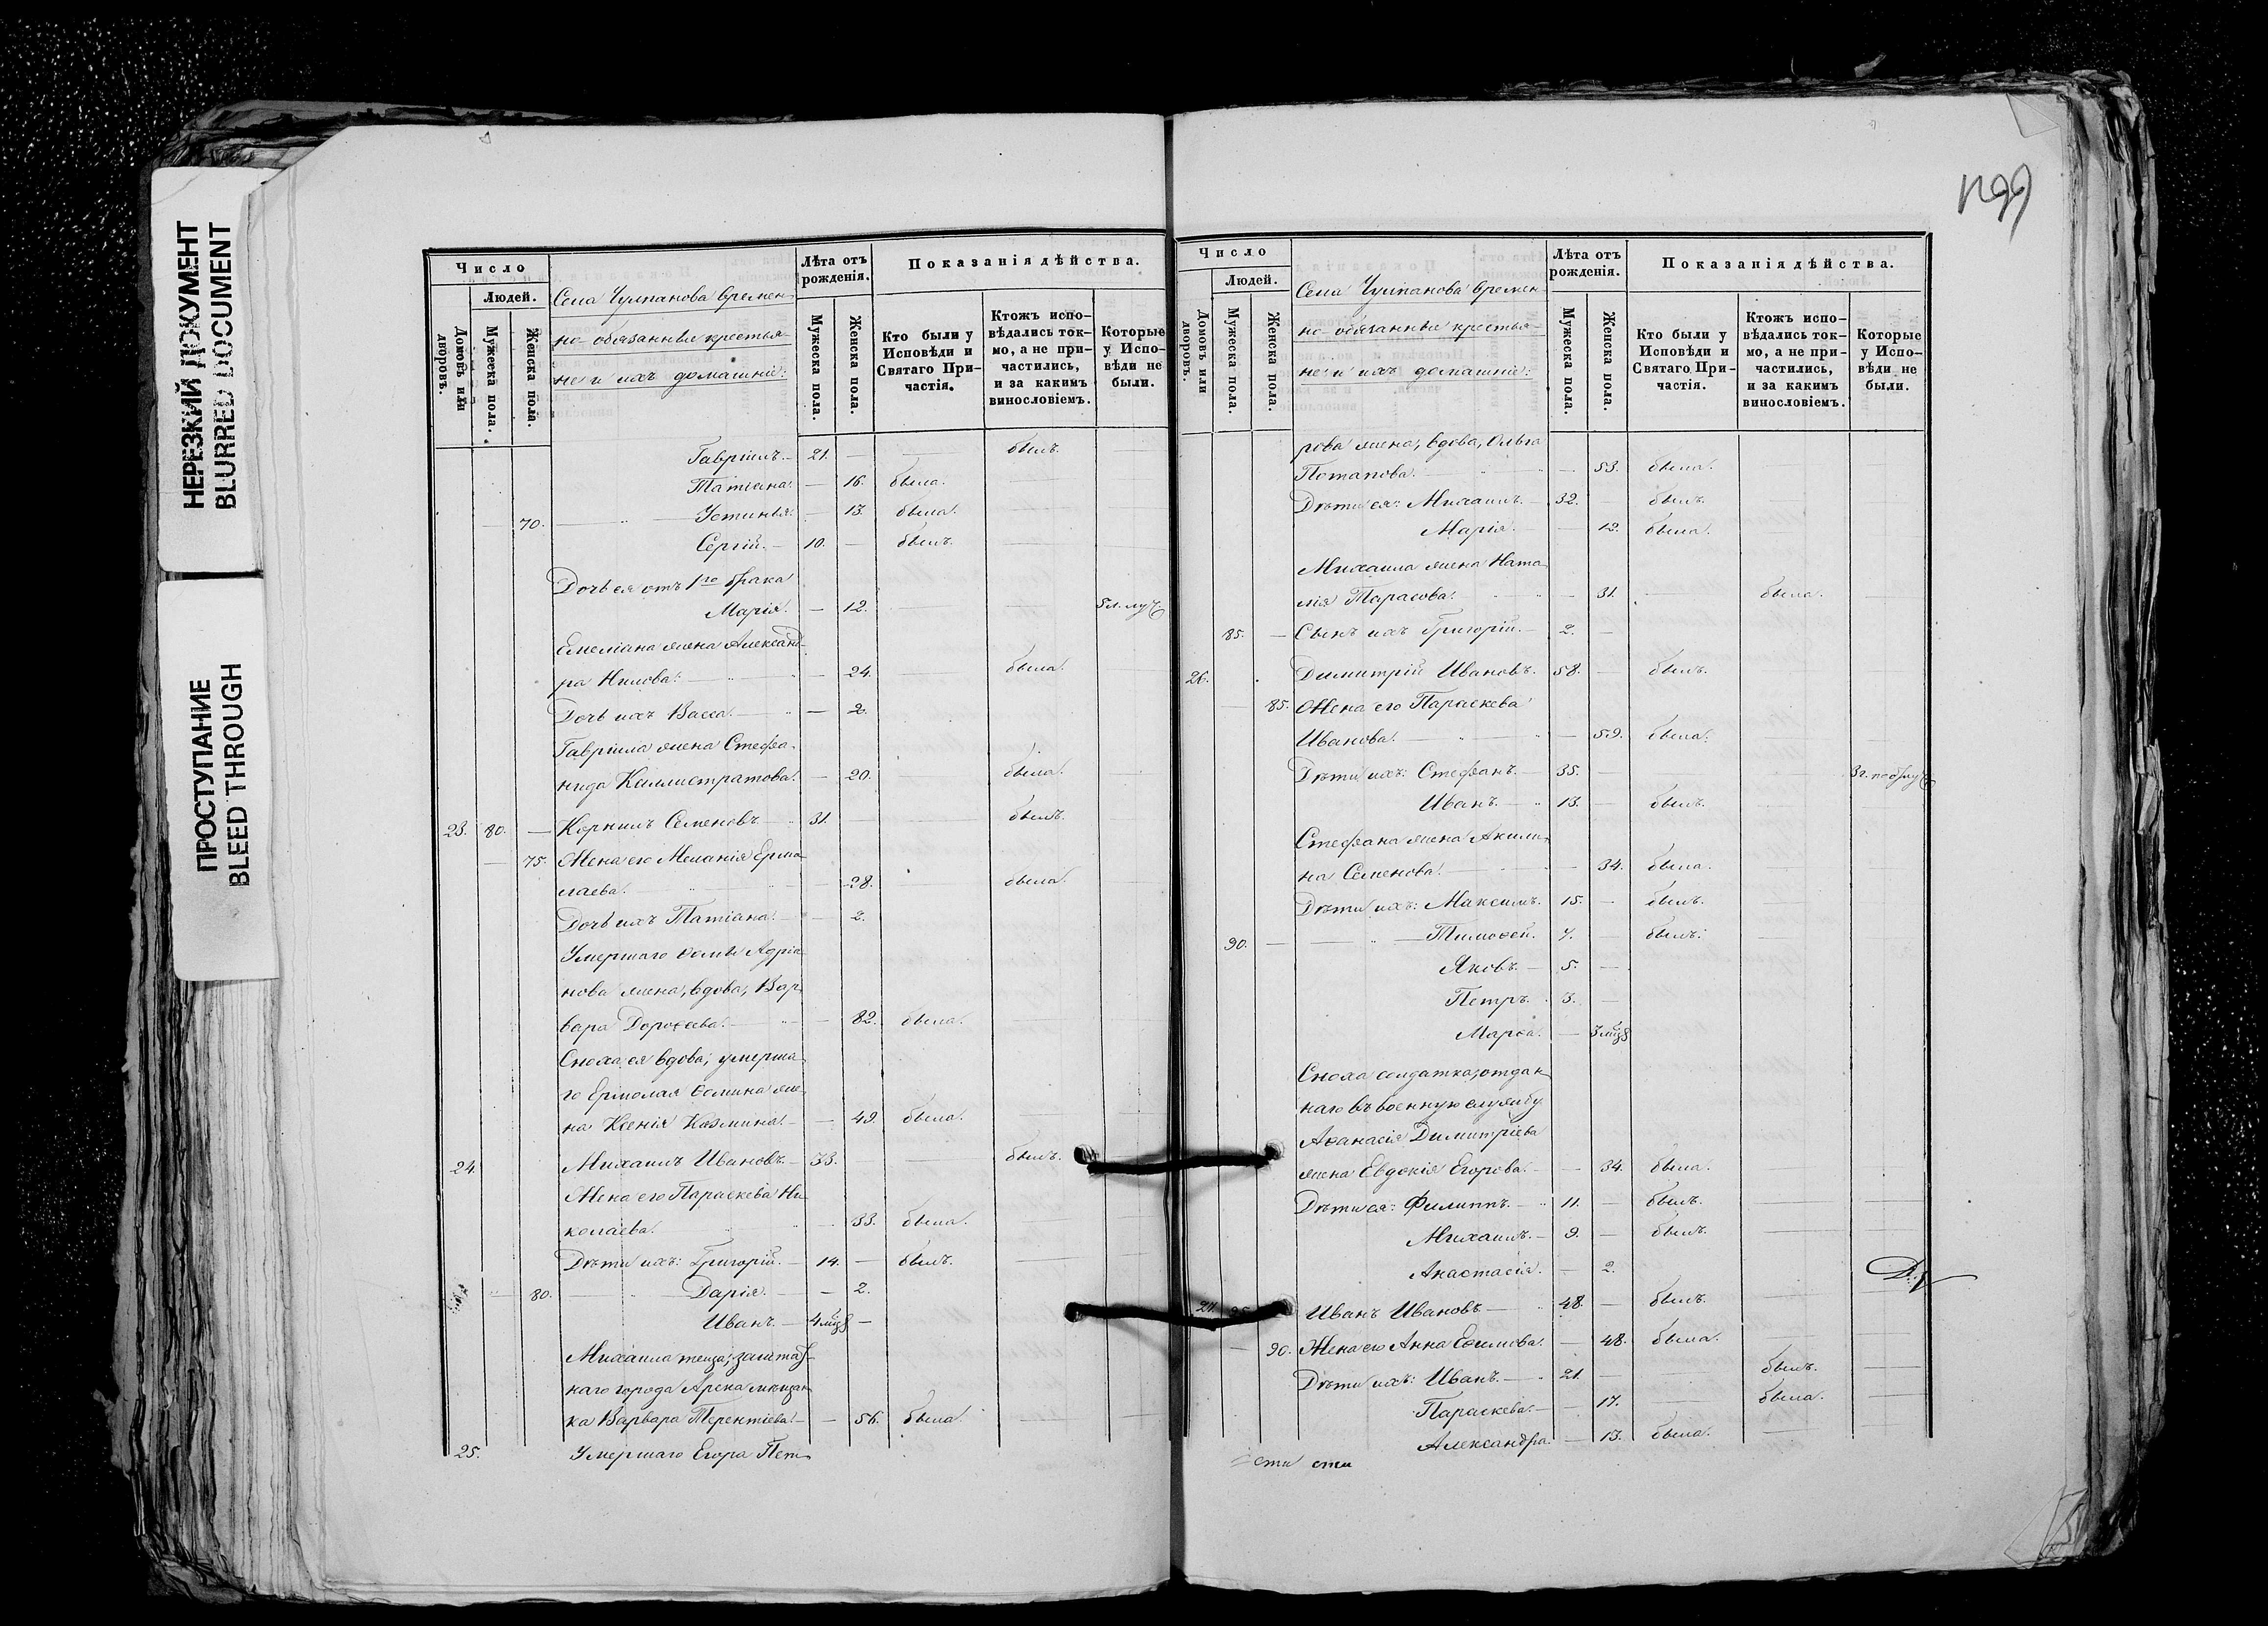 НЕРЕЗКИЙ ДОКУМЕНТ
BLURRED DOCUMENT
ПРОСТУПАНИЕ
BLEED THROUGH
Число
Людей.
Домовъ или дворовъ.
Мужеска пола.
Женска пола.
Села Чулпанова времен-
но-обязанные крестья-
не и ихъ домашніе:
Лѣта отъ рожденія.
Мужеска пола.
Женска пола.
Показанія дѣйства.
Кто были у Исповѣди и Святаго Причастія.
Ктожъ исповѣдались токмо, а не причастились, и за какимъ винословіемъ.
Которые у Исповѣди не были.
Гавріилъ. 21. былъ.
Татіана. 16. была.
70. Устинья. 13. была.
Сергій. 10. былъ.
Дочь ея отъ 1го брака
Марія. 12.
Емеліана жена Александ-
ра Нилова. 24. была.
Дочь ихъ Васса. 2.
Гавріила жена Стефа-
нида Каллистратова. 20. была.
23. 80. Корнилъ Семеновъ 31. былъ.
75. Жена его Меланія Ермо-
лаева. 28. была.
Дочь ихъ Татіана. 2.
Умершаго Ѳомы Адріа-
нова жена, вдова, Вар-
вара Дороѳеева. 82. была.
Сноха ея вдова, умерша-
го Ермолая Ѳомина же-
на Ксенія Козмина. 49. была.
24. Михаилъ Ивановъ. 33. былъ.
Жена его Параскева Ни-
колаева. 33. была.
Дѣти ихъ: Григорій. 14. былъ.
80. Дарія. 2.
Иванъ. 4 мцѣ
Михаила теща, заштат-
наго города Арска мѣщан-
ка Варвара Терентіева. 56. была.
25. Умершаго Егора Пет-
Число
Людей.
Домовъ или дворовъ.
Мужеска пола.
Женска пола.
Села Чулпанова времен-
но-обязанные крестья-
не и ихъ домашніе:
Лѣта отъ рожденія.
Мужеска пола.
Женска пола.
Показанія дѣйства.
Кто были у Исповѣди и Святаго Причастія.
Ктожъ исповѣдались токмо, а не причастились, и за какимъ винословіемъ.
Которые у Исповѣди не были.
рова жена, вдова, Ольга
Потапова. 53. была.
Дѣти ея: Михаилъ. 32. былъ.
Марія. 12. была.
Михаила жена Ната-
лія Тарасова. 31. была.
85. Сынъ ихъ Григорій. 2.
26. Димитрій Ивановъ. 58. былъ.
85. Жена его Параскева
Иванова. 59. была.
Дѣти ихъ: Стефанъ. 35.
Иванъ. 13. былъ.
Стефана жена Акили-
на Семенова. 34. была.
Дѣти ихъ: Максимъ. 15. былъ.
90. Тимоѳей. 7. былъ.
Яковъ. 5.
Петръ. 3.
Марѳа. 3 мцѣ
Сноха солдатка, отдан-
наго въ военную службу
Аѳанасія Димитріева
жена Евдокія Егорова. 34. была.
Дѣти ея: Филиппъ. 11. былъ.
Михаилъ. 9. былъ.
Анастасія. 2.
27. 95. Иванъ Ивановъ. 48. былъ.
90. Жена его Анна Ефимова. 48. была.
Дѣти ихъ: Иванъ. 21. былъ.
Параскева. 17. была.
Александра. 13. была.